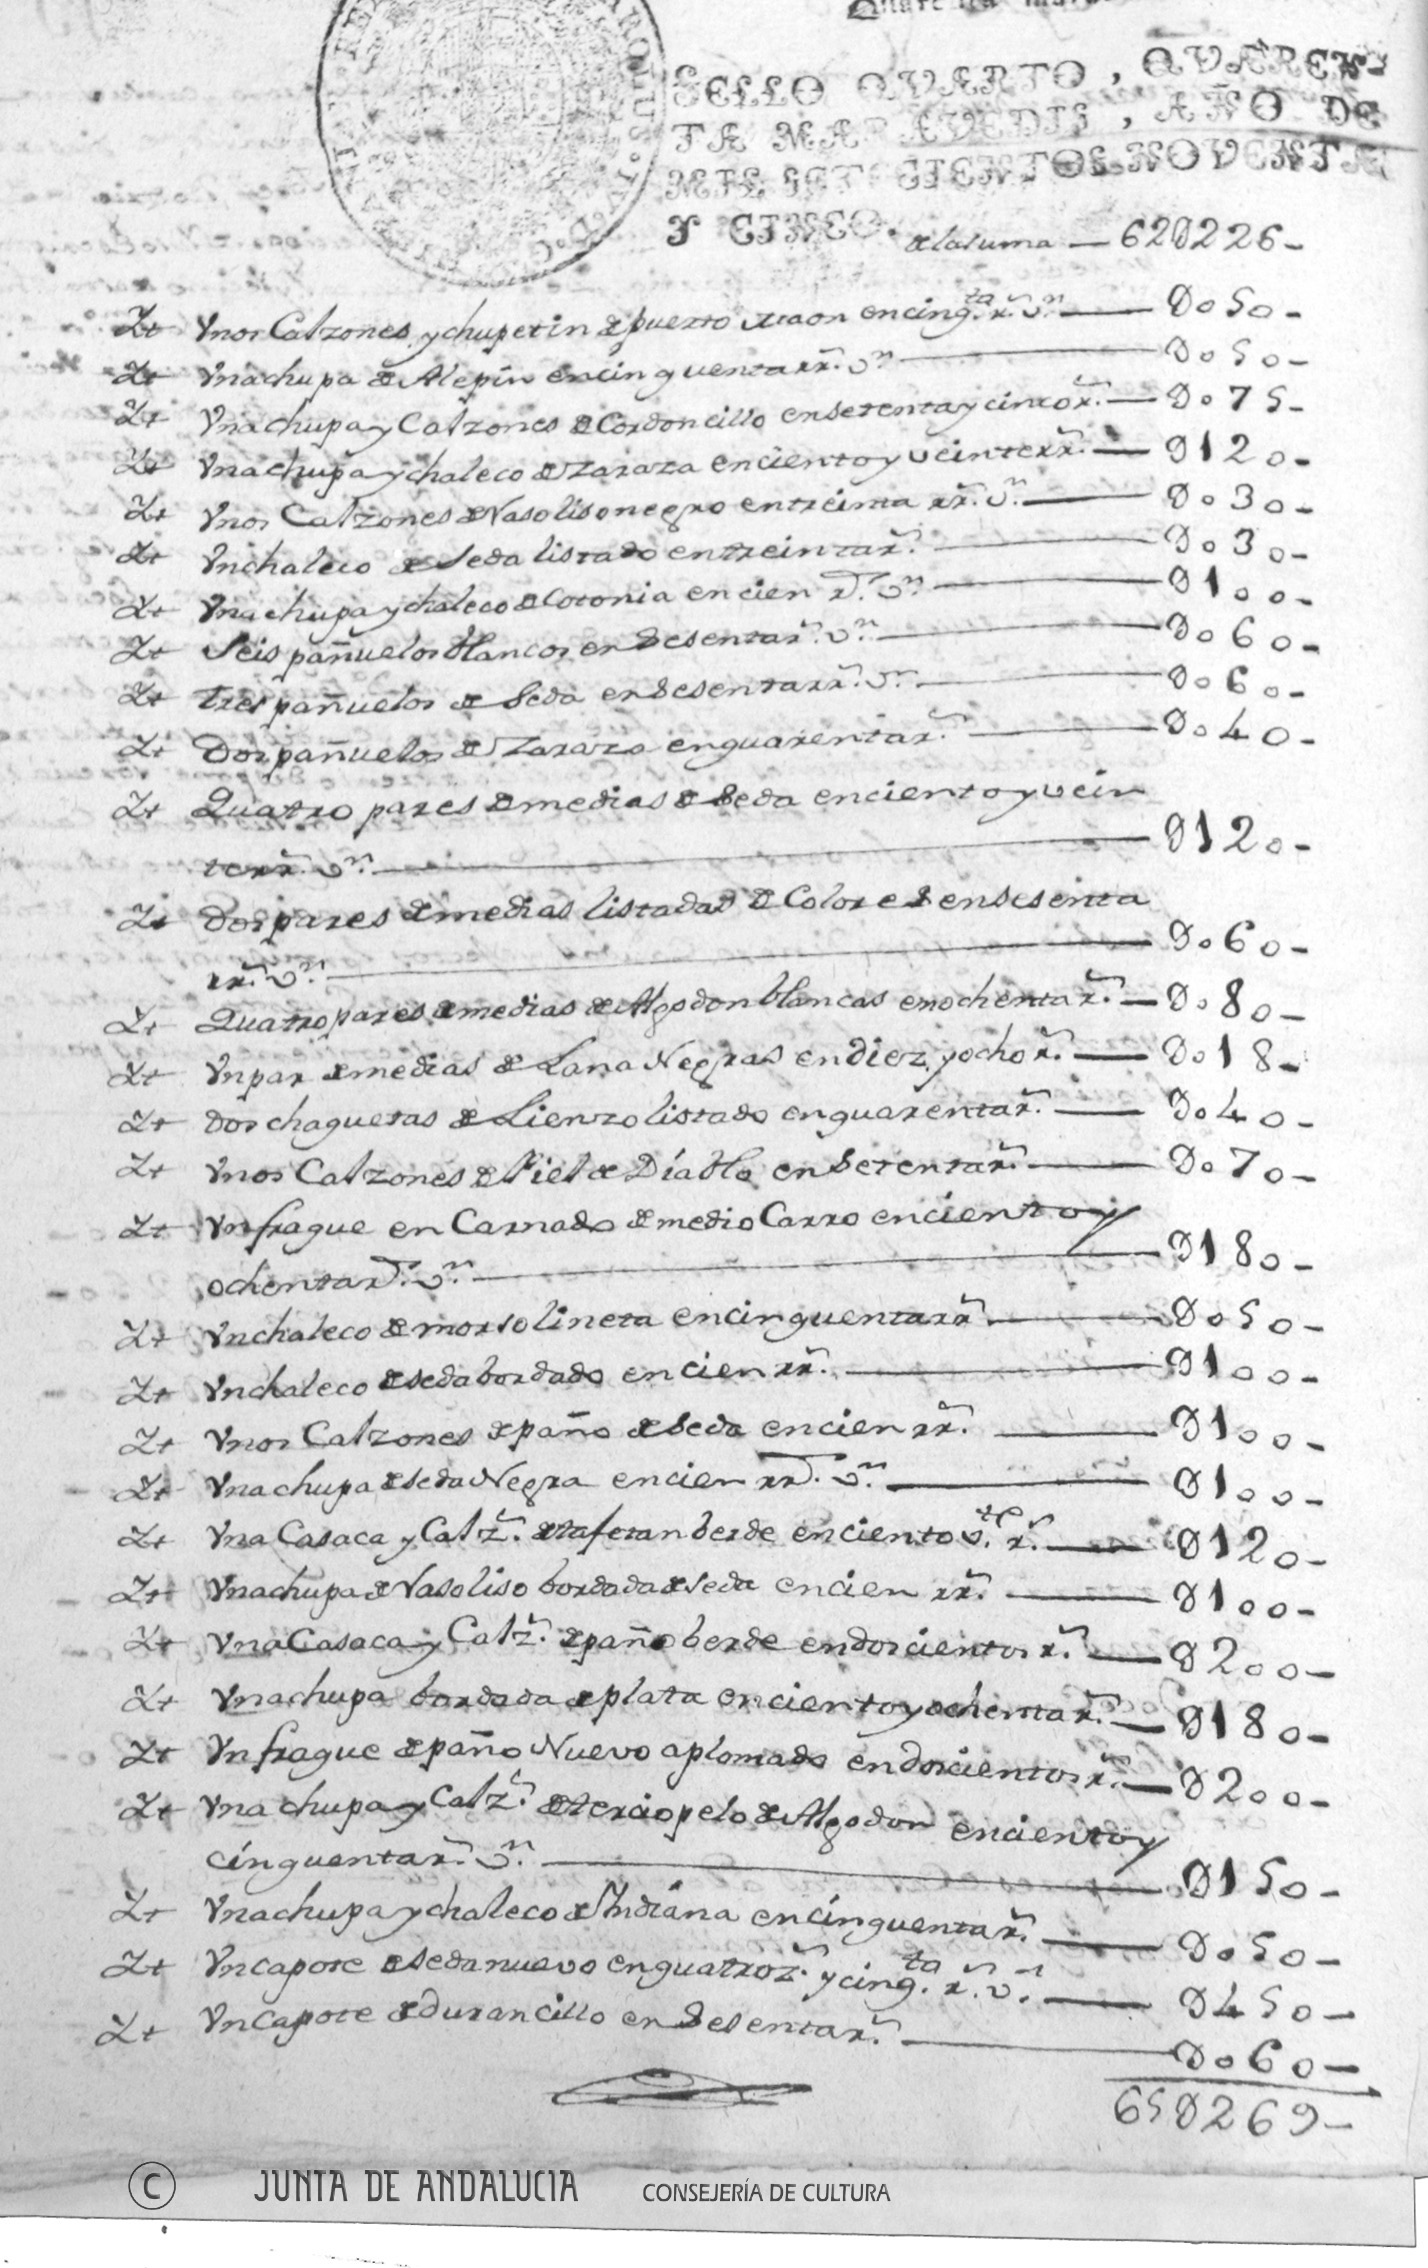 SELLO QVARTO, QVAREN-
TA MARAVEDIS, AÑO DE
MIL SETECIENTOS NOVENTA
Y CINCO.
de la suma — 62U226-
Yt Vnos Calzones y chupetin de puerto maon en cinq.ta r.s v.n — U050-
Yt Vna chupa de Alepin en cinquenta rr.s v.n — U050-
Yt Vna chupa y Calzones de Cordoncillo en setenta y cinco r.s — U075-
Yt Vna chupa y chaleco de zaraza en ciento y veinte rr.s — U120-
Yt Vnos Calzones de Raso liso negro en treinta rr.s v.n — U030-
Yt Vn chaleco de seda listado en treinta r.s — U030-
Yt Vna chupa y chaleco de Cotonia en cien r.s v.n — U100-
Yt Seis pañuelos blancos en sesenta r.s v.n — U060-
Yt Tres pañuelos de seda en sesenta rr.s v.n — U060-
Yt Dos pañuelos de zaraza en quarenta r.s — U040-
Yt Quatro pares de medias de seda en ciento y vein
te rr.s v.n — U120-
Yt Dos pares de medias listadas de Colores en sesenta
rr.s v.n — U060-
Yt Quatro pares de medias de Algodon blancas en ochenta r.s — U080-
Yt Vn par de medias de Lana Negras en diez y ocho r.s — U018-
Yt dos chaquetas de Lienzo listado en quarenta r.s — U040-
Yt Vnos Calzones de Piel de Diablo en setenta r.s — U070-
Yt Vn fraque en Carnado de medio Carro en ciento y
ochenta r.s v.n — U180-
Yt Vn chaleco de morsolineta en cinquenta rr.s — U050-
Yt Vn chaleco de seda bordado en cien rr.s — U100-
Yt Vnos Calzones de paño de seda en cien rr.s — U100-
Yt Vna chupa de seda Negra en cien rr.s v.n — U100-
Yt Vna Casaca y Calz.s de tafetan berde en ciento v.te r.s — U120-
Yt Vna chupa de Raso liso bordada de seda en cien rr.s — U100-
Yt Vna Casaca y Calz.s de paño berde en doscientos r.s — U200-
Yt Vna chupa bordada de plata en ciento y ochenta r.s — U180-
Yt Vn fraque de paño Nuevo aplomado en doscientos r.s — U200-
Yt Vna chupa y Calz.s de terciopelo de Algodon en ciento y
cinquenta r.s v.n — U150-
Yt Vna chupa y chaleco de Indiana en cinquenta r.s — U050-
Yt Vn capote de seda nuevo en quatroz.s y cinq.ta r.s v.n — U450-
Yt Vn Capote de durancillo en sesenta r.s — U060-
65U269-
© JUNTA DE ANDALUCIA CONSEJERÍA DE CULTURA